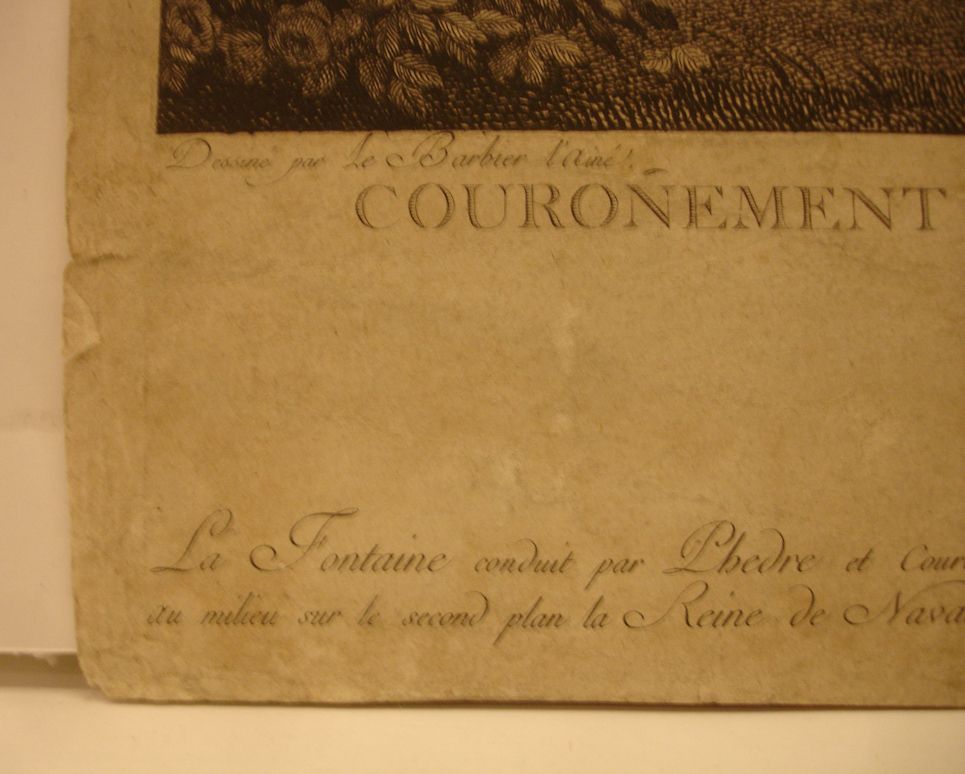 Dessiné par Le Barbier l'ainé.
COUROÑEMENT
La Fontaine conduit par Phedre et Cour
au milieu sur le second plan la Reine de Nava